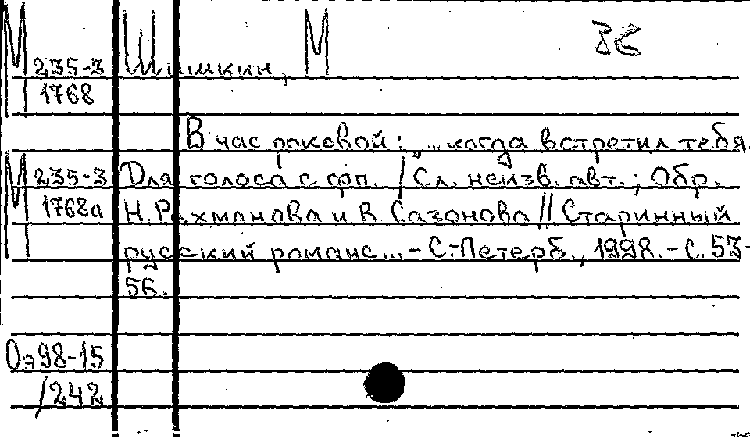 М 235-3 1768 Шишкин, М
В час роковой: "...когда встретил тебя.
М 235-3 Для голоса с фп. / Сл. неизв. авт.; Обр.
1768а Н. Рахманова и В. Сазонова // Старинный
русский романс... - С.-Петерб., 1998. - С. 53-
56.
Оэ98-15
/242